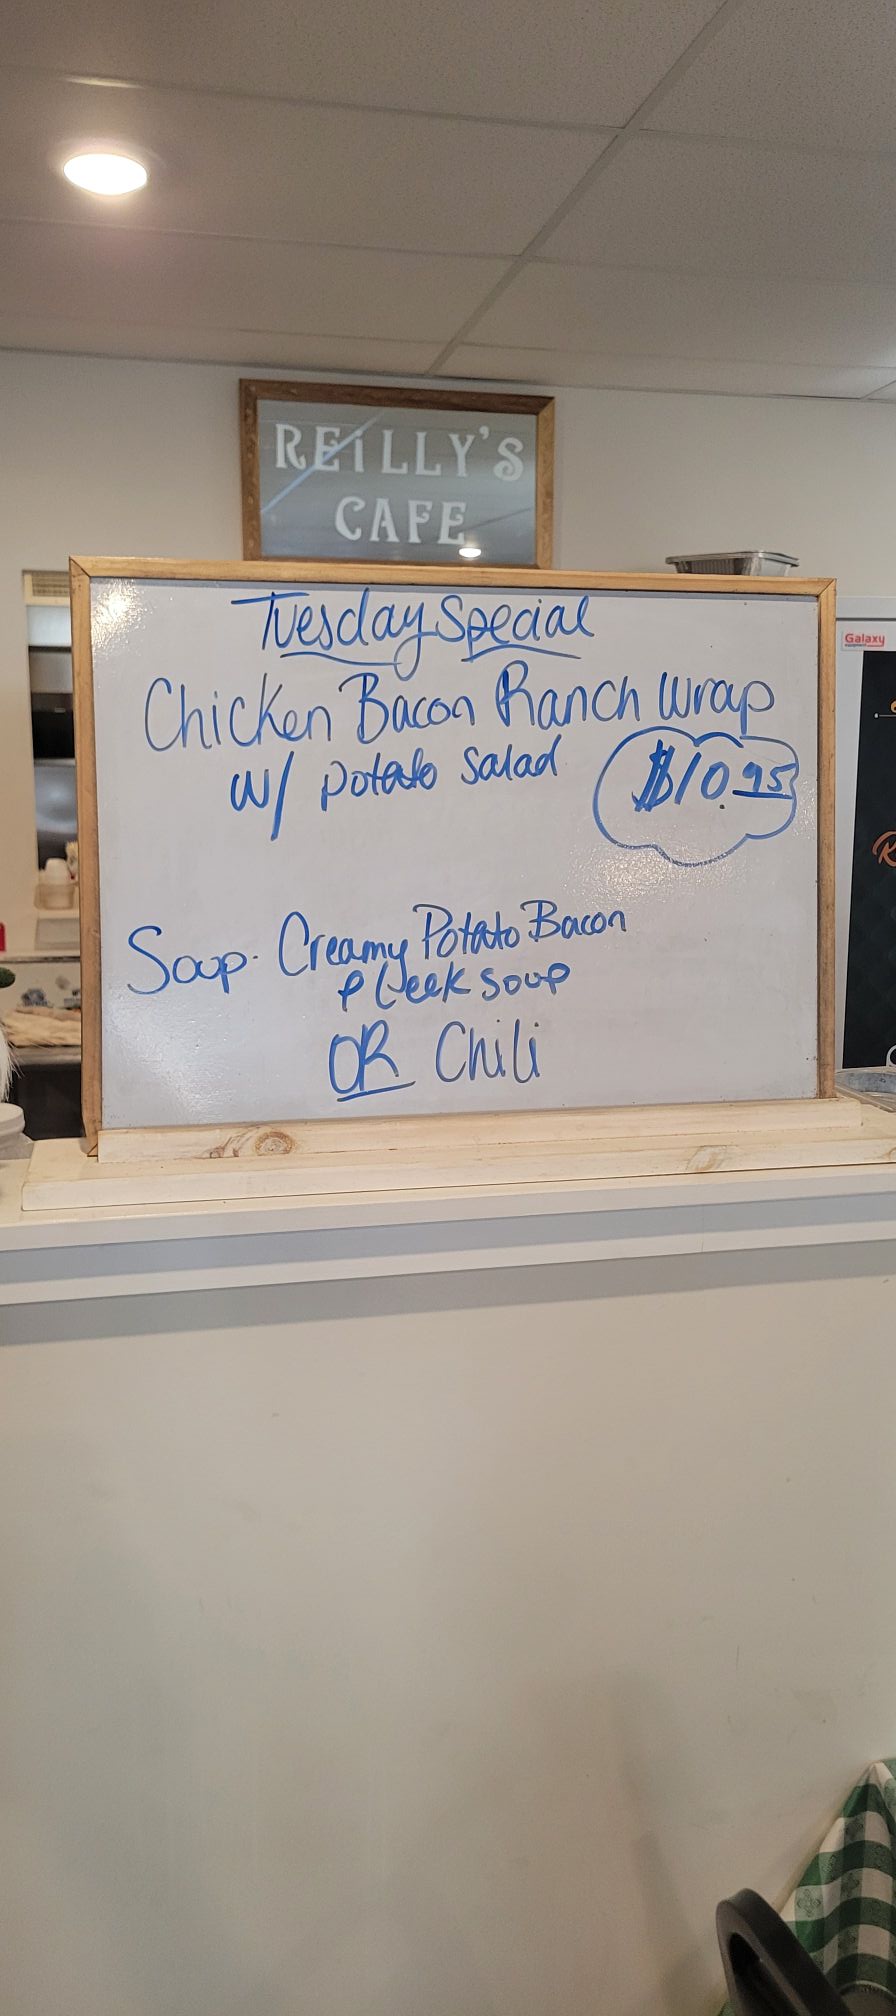 REiLLY'S
CAFE
Tuesday Special
Chicken Bacon Ranch Wrap
w/ potato salad $10.95
Soup. Creamy Potato Bacon
& Leek soup
OR Chili
Galaxy